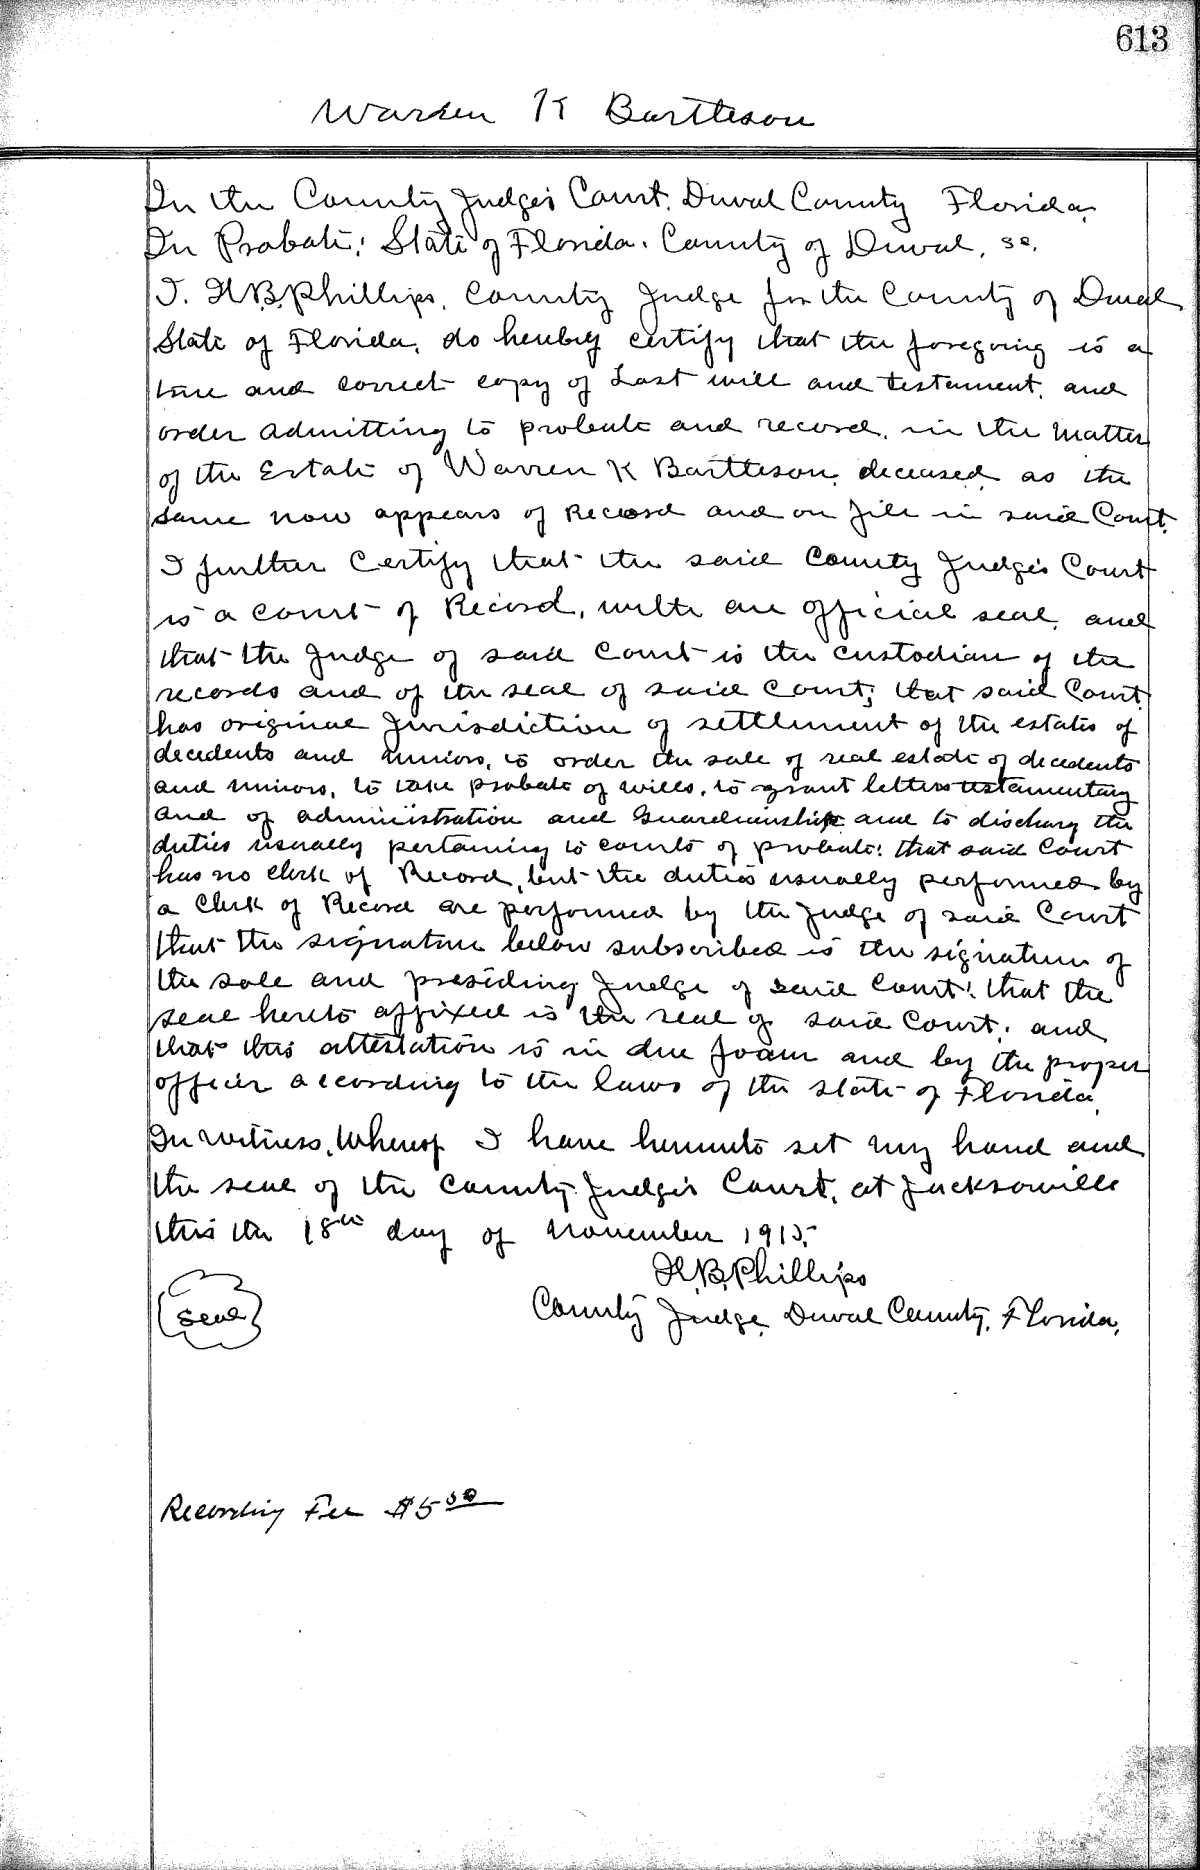 613
Warren K Bartleson
In the County Judge's Court. Duval County Florida.
In Probate: State of Florida. County of Duval, ss.
I. H.B. Phillips, County Judge for the County of Duval
State of Florida, do hereby certify that the foregoing is a
true and correct copy of Last will and testament, and
order admitting to probate and record, in the matter
of the Estate of Warren K Bartleson, deceased, as the
same now appears of Record and on file in said Court.
I further certify that the said County Judge's Court
is a court of Record, with an official seal, and
that the Judge of said Court is the custodian of the
records and of the seal of said Court; that said Court
has original Jurisdiction of settlement of the estates of
decedents and minors, to order the sale of real estate of decedents
and minors, to take probate of wills, to grant letters testamentary
and of administration and Guardianship and to discharg the
duties usually pertaining to courts of probate: that said Court
has no clerk of Record, but the duties usually performed by
a Clerk of Record are performed by the Judge of said Court
that the signature below subscribed is the signature of
the sole and presiding Judge of said Court: that the
seal hereto affixed is the seal of said Court; and
that this attestation is in due form and by the proper
officer according to the laws of the State of Florida.
In witness, Whereof I have hereunto set my hand and
the seal of the County Judge's Court, at Jacksonville
this the 18th day of November 1915.
H.B. Phillips
County Judge, Duval County, Florida.
Seal
Recording Fee $5 50